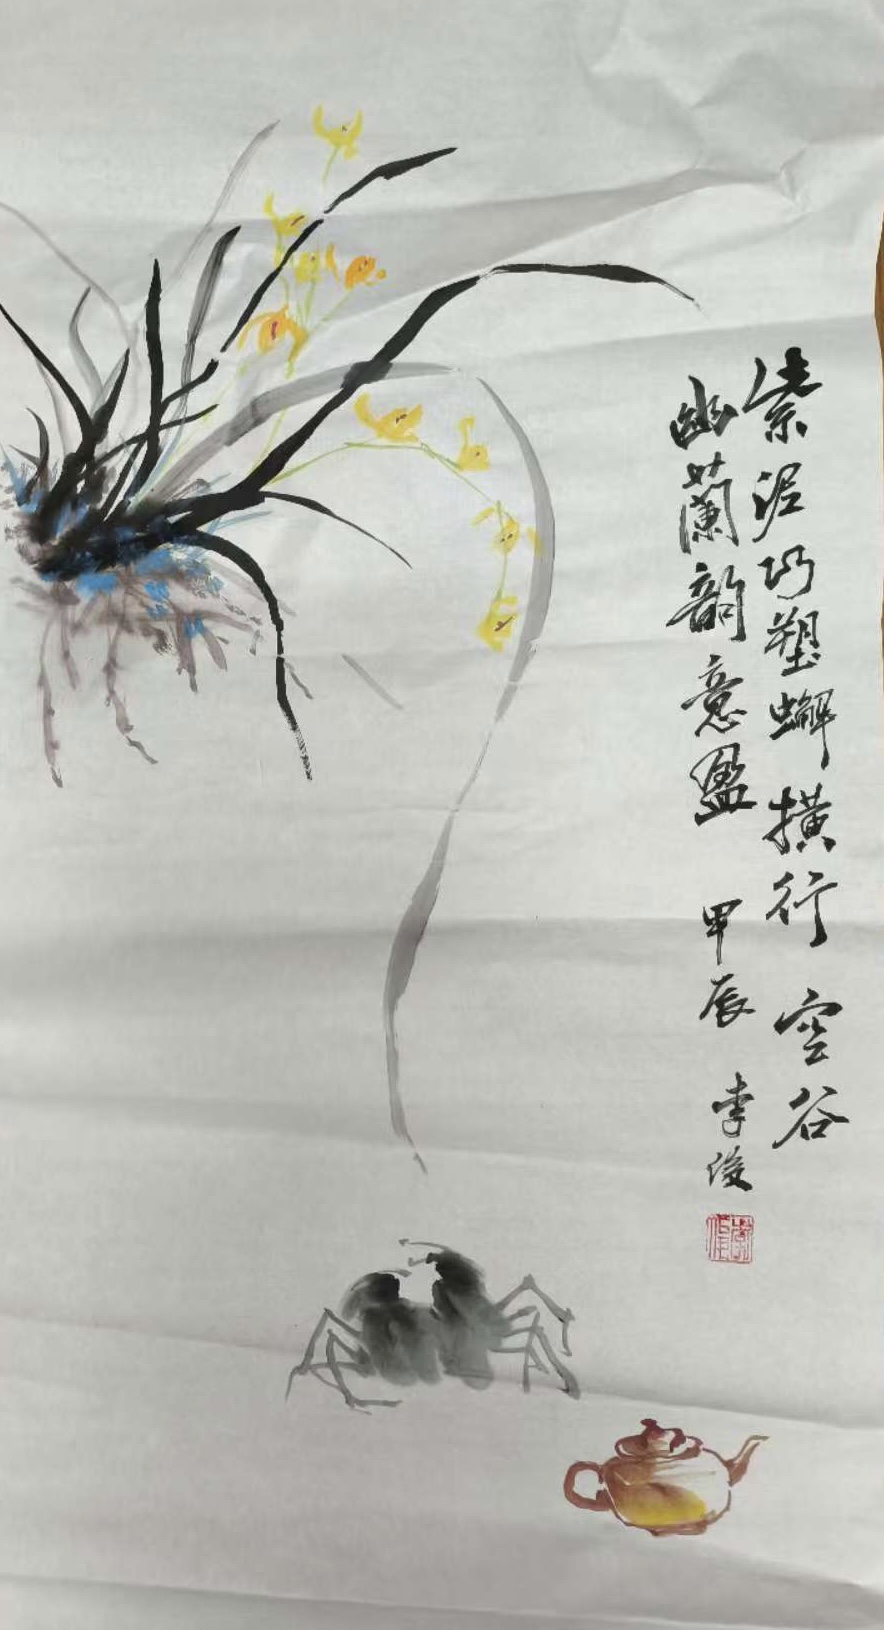 紫泥巧塑蟹横行 空谷
幽蘭韵意盈 甲辰 李俊